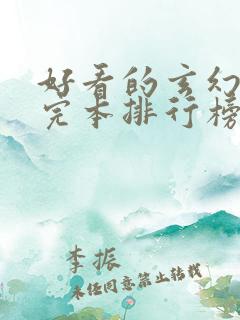 好看的玄幻
完本排行榜
李振
未经同意禁止转载